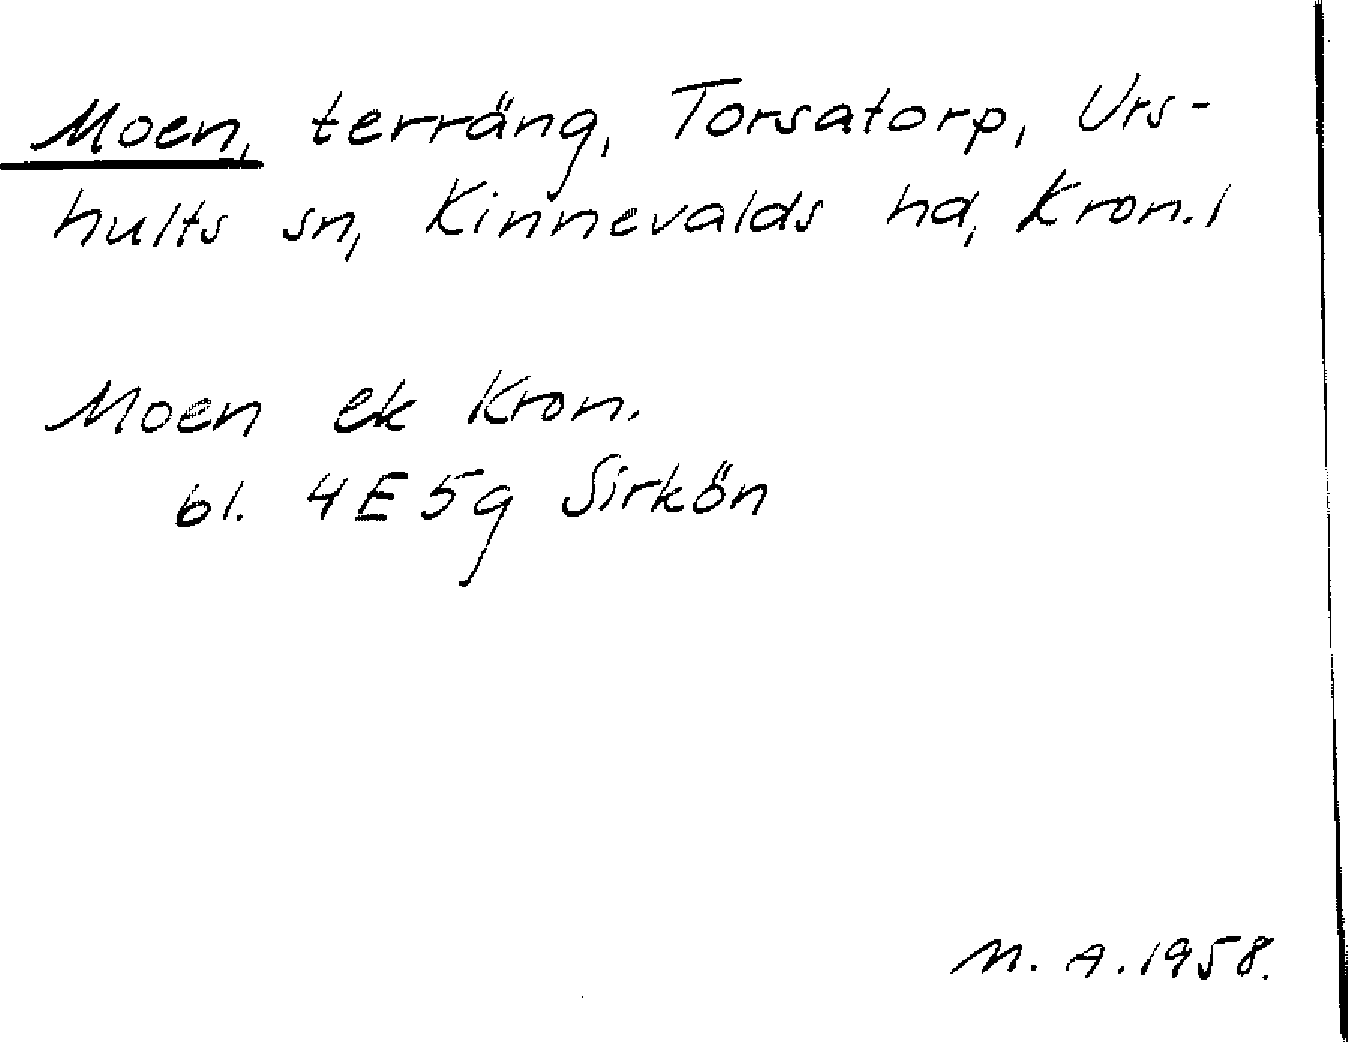 Moen, terräng, Torsatorp, Urs-
hults sn, Kinnevalds hd, Kron. l
Moen ek Kron.
bl. 4E5g Sirkön
M. A. 1958.